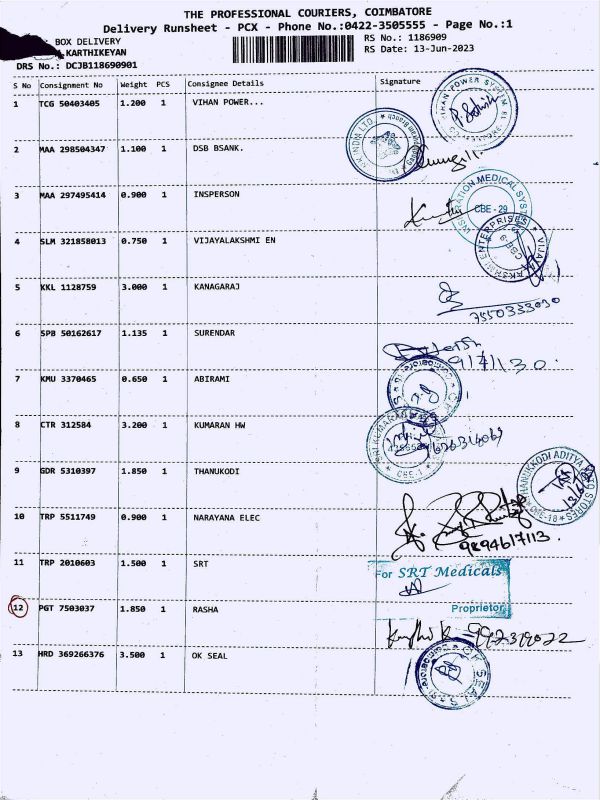 THE PROFESSIONAL COURIERS, COIMBATORE
Delivery Runsheet - PCX - Phone No.:0422-3505555 - Page No.:1
: BOX DELIVERY
KARTHIKEYAN
DRS No.: DCJB118690901
RS No.: 1186909
RS Date: 13-Jun-2023
S No Consignment No Weight PCS Consignee Details Signature
1 TCG 50403405 1.200 1 VIHAN POWER...
2 MAA 298504347 1.100 1 DSB BSANK.
3 MAA 297495414 0.900 1 INSPERSON
CBE - 29
4 SLM 321858013 0.750 1 VIJAYALAKSHMI EN
5 KKL 1128759 3.000 1 KANAGARAJ
7550333030
6 SPB 50162617 1.135 1 SURENDAR
7 KMU 3370465 0.650 1 ABIRAMI
8 CTR 312584 3.200 1 KUMARAN HW
CBE-1
9 GDR 5310397 1.850 1 THANUKODI
CBE-18
10 TRP 5511749 0.900 1 NARAYANA ELEC
9894617113.
11 TRP 2010603 1.500 1 SRT
For SRT Medicals
Proprietor
12 PGT 7503037 1.850 1 RASHA
13 HRD 369266376 3.500 1 OK SEAL